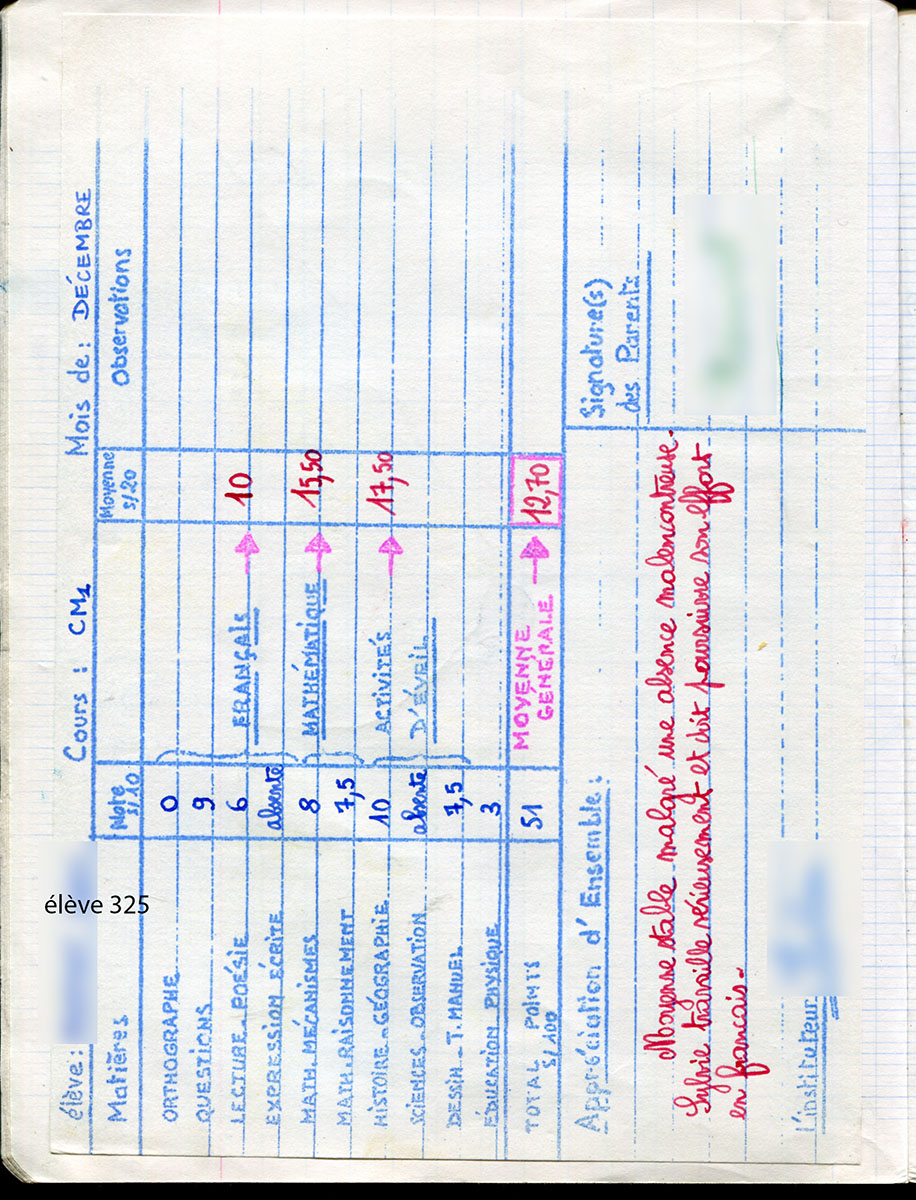 élève 325
élève : Cours : CM1 Mois de : DÉCEMBRE
Matières Note s/10 Moyenne s/20 Observations
ORTHOGRAPHE 0
QUESTIONS 9
LECTURE _ POÉSIE 6 FRANÇAIS 10
EXPRESSION ÉCRITE absente
MATH. MÉCANISMES 8 MATHÉMATIQUE 15,50
MATH. RAISONNEMENT 7,5
HISTOIRE _ GÉOGRAPHIE 10 ACTIVITÉS 17,50
SCIENCES _ OBSERVATION absente D'ÉVEIL
DESSIN _ T. MANUEL 7,5
ÉDUCATION PHYSIQUE 3
TOTAL POINTS s/100 51 MOYENNE GÉNÉRALE 12,70
Appréciation d'Ensemble :
Moyenne stable malgré une absence malencontreuse.
Sylvie travaille sérieusement et doit poursuivre son effort
en français.
Signature(s)
des Parents
L'instituteur